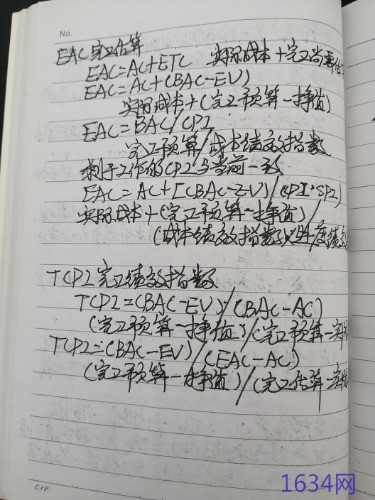 No.
EAC 完工估算
EAC=AC+ETC 实际成本+完工尚需估
EAC=AC+(BAC-EV)
实际成本+(完工预算-挣值)
EAC=BAC/CPI
完工预算/成本绩效指数
剩于工作的CPI与当前一致
EAC=AC+[(BAC-EV)/(CPI*SPI)
实际成本+(完工预算-挣值)/
(成本绩效指数×进度绩效
TCPI 完工绩效指数
TCPI=(BAC-EV)/(BAC-AC)
(完工预算-挣值)/(完工预算-实际
TCPI=(BAC-EV)/(EAC-AC)
(完工预算-挣值)/(完工估算-实际
1634网